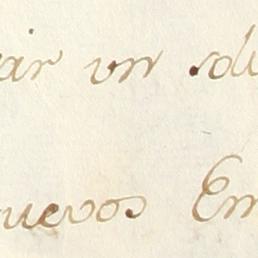 ar un sol
uevos Em